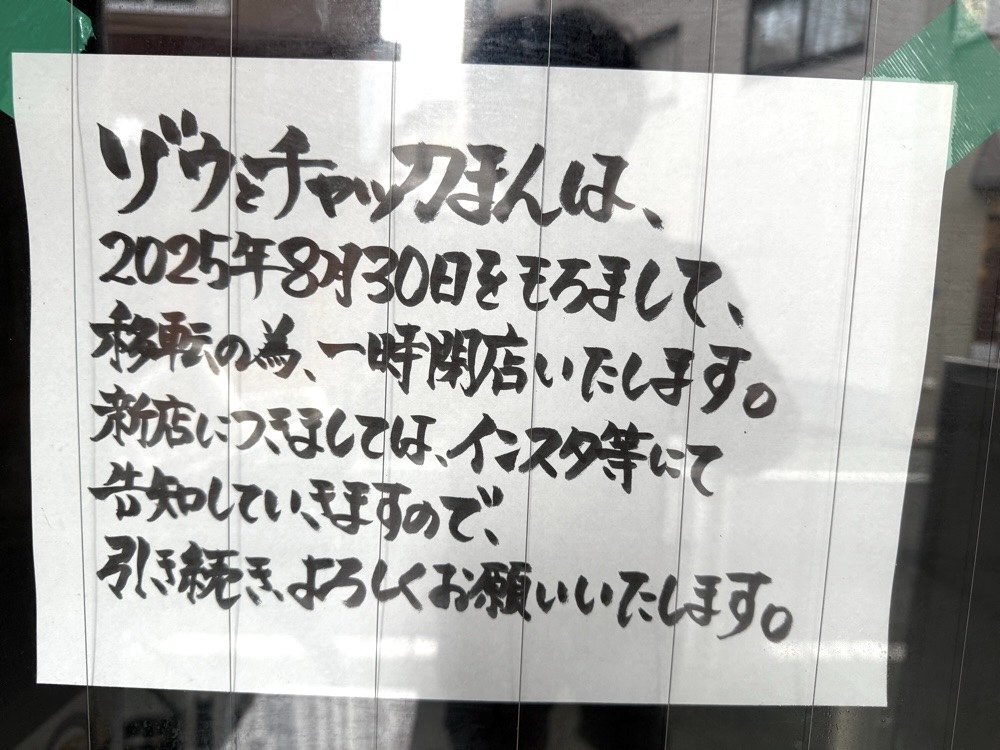 ゾウとチャッカまんは、
2025年8月30日をもちまして、
移転の為、一時閉店いたします。
新店につきましては、インスタ等にて
告知していきますので、
引き続き、よろしくお願いいたします。